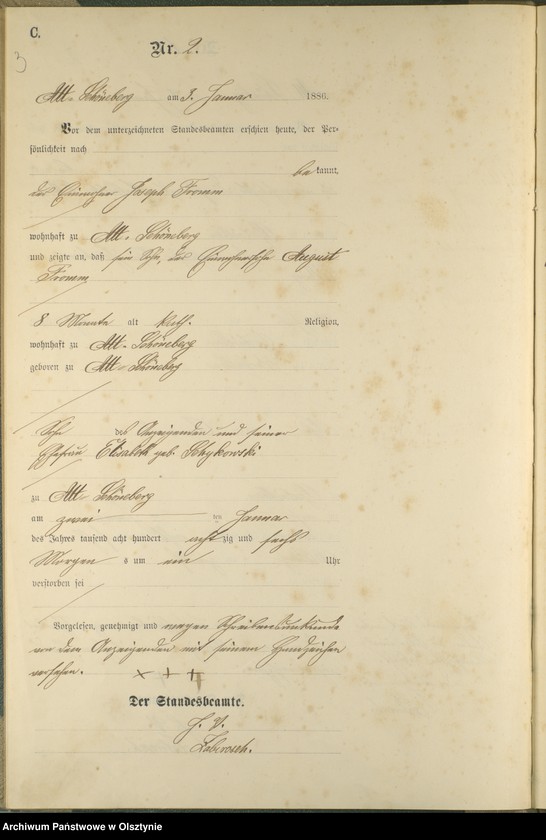 C.
3
Nr. 2.
Alt-Schöneberg am 3. Januar 1886.
Vor dem unterzeichneten Standesbeamten erschien heute, der Per-
sönlichkeit nach
bekannt,
der Einwohner Joseph Fromm
wohnhaft zu Alt-Schöneberg
und zeigte an, daß sein Sohn, der Einwohnersohn August
Fromm
8 Monate alt kath. Religion,
wohnhaft zu Alt-Schöneberg
geboren zu Alt-Schöneberg
Sohn des Anzeigenden und seiner
Ehefrau Elisabeth geb.
zu Alt-Schöneberg
am zwei ten Januar
des Jahres tausend acht hundert achtzig und sechs
Morgens um ein Uhr
verstorben sei
Vorgelesen, genehmigt und wegen Schreibensunkunde
von dem Anzeigenden mit seinem Handzeichen
versehen. + + +
Der Standesbeamte.
J. V.
Archiwum Państwowe w Olsztynie